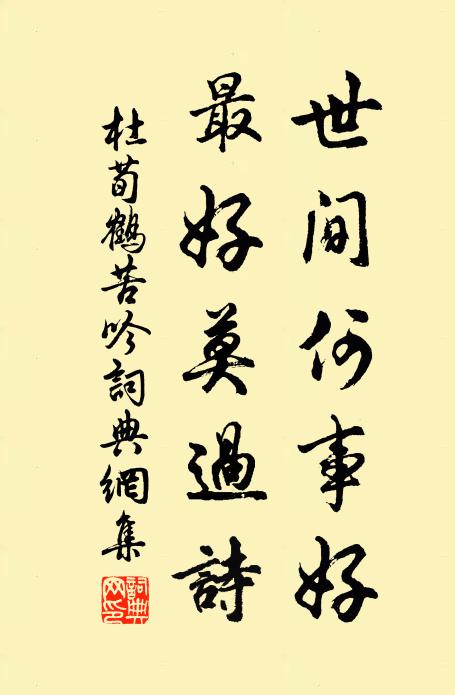 世間何事好
最好莫過詩
杜荀鶴苦吟詞典網集
詞典网印